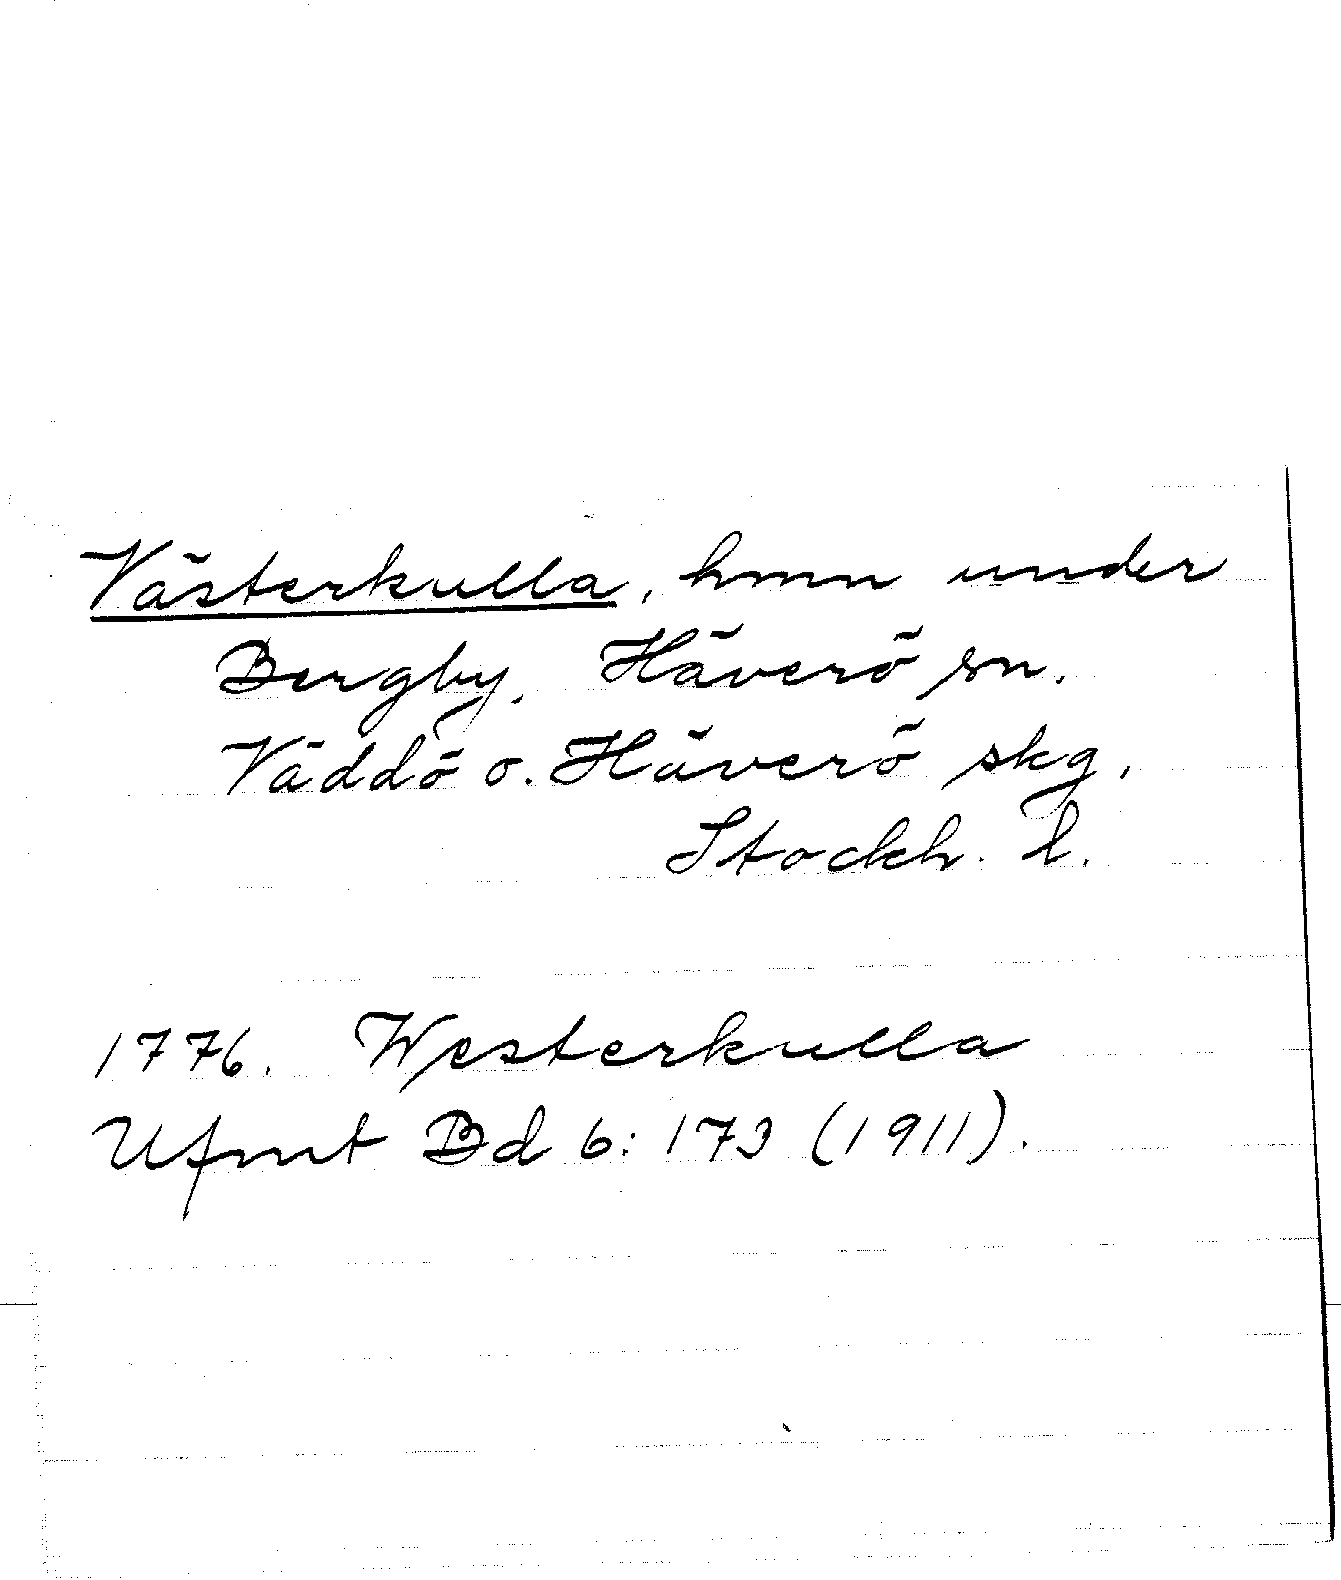 Västerkulla, hmn under
Bergby. Häverö sn.
Väddö o. Häverö skg.
Stockh. l.
1776. Westerkulla
Ufmt Bd 6: 173 (1911).